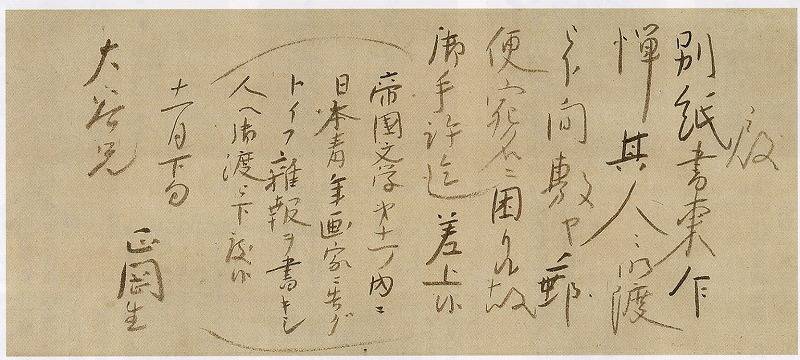 別紙書束乍
憚其人ニ御渡
下間敷ヤ郵
便宛名ニ困り候故
御手許迄差上候
帝国文学第十一ノ内ニ
日本青年画家ニ告グ
トイフ雑報ヲ書キシ
人ヘ御渡シ下度候
十一月下旬
正岡生
大谷兄